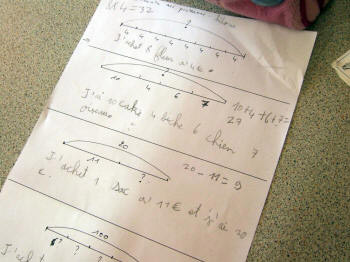 U4=32
?
4 4 4 4 4 4 4 4
J'achète 8 fleur à 4€
?
10 4 6 7
10+4+6+7=
27
J'ai 10 cahe 4 biche 6 chien 7
oiseau
20
11 ?
20-11=9
J'achet 1 sac a 11€ et j'ai 20
€.
100
J'achet